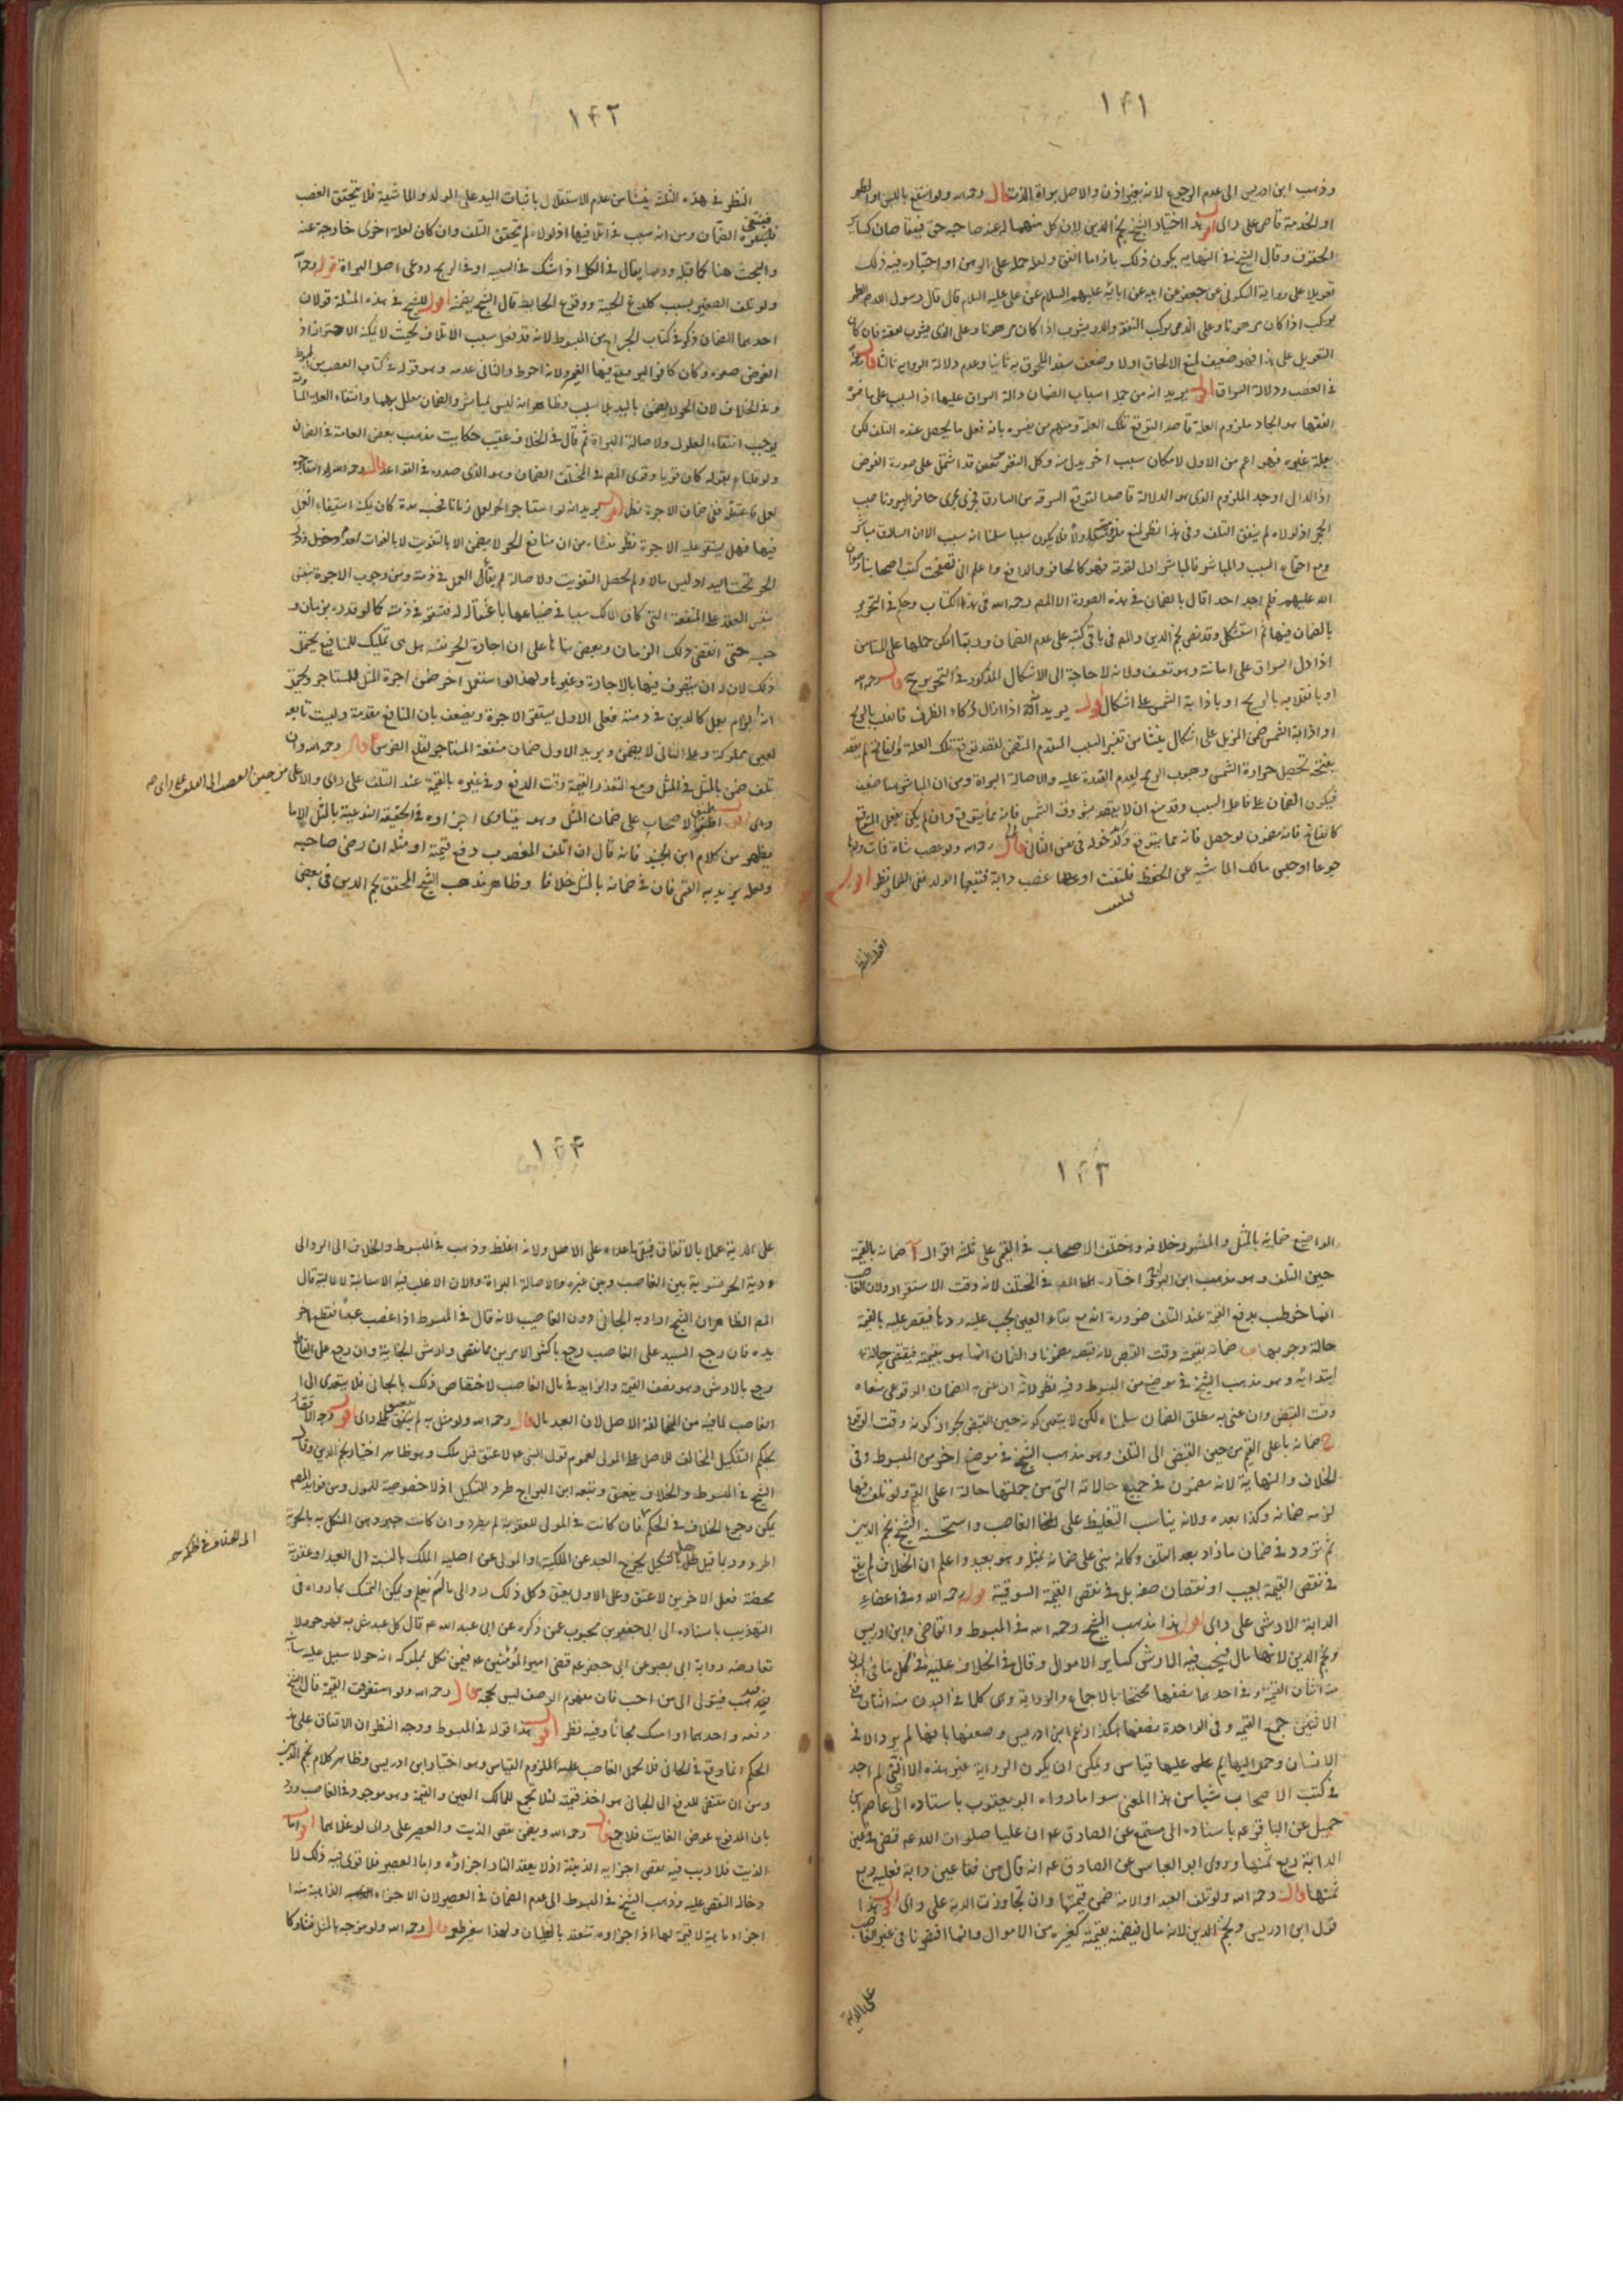 ١٤١
وذهب ابن ادريس الى عدم الرجوع لانه بغير اذن والاصل براءة الذمة قال رحمه الله ولو انتفع باللبن او الظهر
او الخدمة قاص على راى اقول هذا اختيار الشيخ نجم الدين لان كل منهما له عند صاحبه حق فيتقاصان كساير
الحقوق وقال الشيخ فى النهايه يكون ذلك بازاء ما انفق ولعله حمله على الرهن او اختياره فيه ذلك
تعويلا على رواية السكونى عن جعفر عن ابيه عن ابائه عليهم السلام عن على عليه السلام قال قال رسول الله الظهر
يركب اذا كان مرهونا وعلى الذى يركب النفقة والدر يشرب اذا كان مرهونا وعلى الذى يشرب نفقته فان كان
التعويل على هذا فهو ضعيف لمنع الالحاق اولا وضعف سند الملحق به ثانيا وعدم دلالة الرواية ثالثا قال
فى الغصب ودلالة السراق اقول يريد انه من جملة اسباب الضمان دلالة السراق عليها اذ السبب على ما فسره
الفقهاء هو ايجاد ملزوم العلة قاصدا لتوقع تلك العلة ومنهم من يفسره بانه فعل ما يحصل عنده التلف لكن
بعلة غيره فهو اعم من الاول لامكان سبب اخر بدل منه وكل التفسيرين قد اشتمل على صورة الفرض
اذ الدال اوجد الملزوم الذى هو الدلالة قاصدا لتوقع السرقة من السارق فجرى مجرى حافر البير وناصب
الحجر اذ لولاه لم يتفق التلف وفى هذا نظر لمنع اولا فلا يكون سببا سلمنا انه سبب الا ان السارق مباشر
ومع اجتماع السبب والمباشر فالمباشر اولى لقوته فهو كالحافر والدافع واعلم انى تصفحت كتب اصحابنا رضوان
الله عليهم فلم اجد احدا قال بالضمان فى هذه الصورة الا المصنف رحمه الله فى هذا الكتاب وحكم فى التحرير
بالضمان فيها ثم استشكل وقد نص نجم الدين والمصنف فى باقى كتبه على عدم الضمان وربما امكن حملها على
اذا دل السراق على امانته وهو تعسف ولانه لا حاجة الى الاشكال المذكور فى التحرير ح قال رحمه الله
او بانقلابه بالريح او باذابة الشمس على اشكال اقول يريد انه اذا ازال وكاء الظرف فانقلب بالريح
او اذابة الشمس ضمن المزيل على اشكال ينشا من تفسير السبب المتقدم المقتضى لقصد توقع تلك العلة
بفتحه تحصيل حرارة الشمس وهبوب الريح لعدم القدرة عليه ولاصالة البراءة ومن ان المباشر هنا ضعيف
فيكون الضمان على فاعل السبب وقد منع ان لا يقصد شروق الشمس فانه مما يتوقع وان لم يكن بفعل المتوقع
كالفاتح فانه مضمون لو حصل فانه مما يتوقع وكذا دخوله فى نفس الثانى قال رحمه الله ولو غصب شاة فمات ولدها
جوعا او حبس مالك الماشيه عن الحفظ فتلفت او غصب دابة فتبعها الولد ففى الضمان نظر اقول
١٤٢
النظر فى هذه الثلث ينشا من عدم الاستقلال باثبات اليد على الولد والماشية فلا يتحقق الغصب
فينتفى الضمان ومن انه سبب فى اتلافها اذ لولاه لم يتحقق التلف وان كان لعلة اخرى خارجة عنه
والبحث هنا كما قبله وربما يقال فى الكل اذا شك فى السببية او فى الريح روعى اصل البراءة قوله رحمه الله
ولو تلف الصغير بسبب كلدغ الحية ووقوع الحايط قال الشيخ يضمنه اقول للشيخ فى هذه المسئلة قولان
احدهما الضمان ذكره فى كتاب الجراح من المبسوط لانه قد فعل سبب الاتلاف بحيث لا يمكنه الاحتراز اذ
الفرض صغره وكان كحافر البير يقع فيها الغير ولانه احوط والثانى عدمه وهو قوله فى كتاب الغصب من المبسوط
وفى الخلاف لان الحر لا يضمن باليد بلا سبب وظاهر انه ليس بمباشر والضمان معلل بهما وانتفاء العلة
يوجب انتفاء المعلول ولاصالة البراءة ثم قال فى الخلاف عقيب حكاية مذهب بعض العامة فى الضمان
ولو قلنا بقوله كان قويا وقوى المصنف فى المختلف الضمان وهو الذى صدره فى القواعد قال رحمه الله ولو استاجره
لعمل فاعتقله ففى ضمان الاجرة نظر اقول يريد انه لو استاجر الحر لعمل زمانا فحبسه مدة كان يمكنه استيفاء العمل
فيها فهل يستقر عليه الاجرة نظر منشاءه من ان منافع الحر لا يضمن الا بالتفويت لا بالفوات لعدم دخول
الحر تحت اليد اذ ليس مالا ولم يحصل التفويت ولاصالة لم يقابل العمل فى ذمته ومن وجوب الاجرة بنفس
بنفس العقد على المنفعة التى كان المالك سببا فى ضياعها باعتقاله له فتستقر فى ذمته كما لو قدره بزمان و
حبسه حتى انقضى ذلك الزمان وبعض بناها على ان اجارة الحر نفسه هل هى تمليك للمنافع يحتمل
ذلك لان له ان يتصرف فيها بالاجارة وغيرها ولهذا لو استعمل آخر ضمن اجرة المثل للمستاجر ويحتمل
انه الزام بعمل كالدين فى ذمته فعلى الاول يستقر الاجرة ويضعف بان المنافع معدومة وليست تابعه
لعين مملوكة وعلى الثانى لا يضمن ويريد الاول ضمان منفعة المستاجر لنقل العوض قال رحمه الله وان
تلف ضمن بالمثل فى المثل ومع التعذر القيمة وقت الدفع وفى غيره بالقيمة عند التلف على راى والاعلى من حين الغصب الى التلف على راى
راى اقول اطبق الاصحاب على ضمان المثل وهو يتساوى اجزاؤه فى الحقيقة النوعية بالمثل الا ما
يظهر من كلام ابن الجنيد فانه قال ان اتلف المغصوب دفع قيمته او مثله ان رضى صاحبه
ولعله يريد به القيمى فان فى ضمانه بالمثل خلافا وظاهر مذهب الشيخ المحقق نجم الدين فى بعض
١٤٣
المواضع ضمانه بالمثل والمشهور خلافه واختلف الاصحاب فى القيمى على ثلثه اقوال آ ضمانه بالقيمة
حين التلف وهو مذهب ابن البراج واختاره المصنف فى المختلف لانه وقت الاستقرار ولان الغاصب
انما خوطب بدفع القيمة عند التلف ضرورة انه مع بقاء العين يجب عليه ردها فيقصر عليه بالقيمة
حالة وجوبها ب ضمانه بقيمته وقت القبض لانه قبضه مضمونا والضمان انما هو بقيمته فيقتضى حالة
ابتدائه وهو مذهب الشيخ فى موضع من المبسوط وفيه نظر لانه ان عنى به الضمان الوقوعى منعناه
وقت القبض وان عنى به مطلق الضمان سلمناه لكن لا يتعين كونه حين القبض لجواز كونه وقت الوقوع
ج ضمانه باعلى القيم من حين القبض الى التلف وهو مذهب الشيخ فى موضع اخر من المبسوط وفى
الخلاف والنهاية لانه مضمون فى جميع حالاته التى من جملتها حالة اعلى القيم ولو تلف فيها
لزمه ضمانه وكذا بعده ولانه يناسب التغليظ على الغاصب واستحسنه الشيخ نجم الدين
ثم تردد فى ضمان ما زاد بعد التلف وكانه بنى على ضمانه بمثله وهو بعيد واعلم ان الخلاف لم يقع
فى نقص القيمة بعيب او نقصان صفة بل فى نقص القيمة السوقية قوله رحمه الله وفى اعضاء
الدابة الارش على راى اقول هذا مذهب الشيخ رحمه الله فى المبسوط والقاضى وابن ادريس
ونجم الدين لانها مال فيجب فيه الارش كساير الاموال وقال فى الخلاف عليه فى كل ما فى البدن
منه اثنان القيمة وفى احدهما نصفها محتجا بالاجماع والرواية وهى كلما فى البدن منه اثنان ففى
الاثنين جميع القيمه وفى الواحدة نصفها هكذا زعم ابن ادريس وضعفها بانها لم يرد الا فى
الانسان وحمل البهايم عليها قياس ويمكن ان يكون الرواية غير هذه الا اننى لم اجد
فى كتب الاصحاب شيا من هذا المعنى سوا ما رواه ابو يعقوب باسناده الى عاصم بن
حميل عن الباقر عه باسناده الى مسمع عن الصادق عه ان عليا صلوات الله عه قضى فى عين
الدابة ربع ثمنها وروى ابو العباس عن الصادق عه انه قال من فقا عين دابة فعليه ربع
ثمنها قال رحمه الله ولو تلف العبد او الامة ضمن قيمتها وان تجاوزت الدية على راى اقول هذا
قول ابن ادريس ونجم الدين لانه مال فيضمنه بقيمته كغيره من الاموال وانما اقتصرنا فى غير الغاصب
على الدية
١٤٤
على الدية عملا بالاتفاق فيبقى ما عداه على الاصل ولانه اغلظ وذهب فى المبسوط والخلاف الى الرد الى
دية الحر تسوية بين الغاصب وبين غيره ولاصالة البراءة ولان الاغلب فيه الانسانية لا المالية قال
المصنف الظاهر ان الشيخ اراد به الجانى دون الغاصب لانه قال فى المبسوط اذا غصب عبدا فقطع اخر
يده فان رجع السيد على الغاصب رجع باكثر الامرين مما نقص وارش الجناية وان رجع على القاطع
رجع بالارش وهو نصف القيمة والزايد فى مال الغاصب لاختصاص ذلك بالجانى فلا يتعدى الى
الغاصب لما فيه من المخالفة الاصل لان العبد مال قال رحمه الله ولو مثل به لم ينعتق على راى اقول وجه
بحكم التنكيل المخالف للاصل على المولى لعموم قول النبى عه لا عتق قبل ملك وهو ظاهر اختيار نجم الدين وقال
الشيخ فى المبسوط والخلاف ينعتق وتبعه ابن البراج طرد التنكيل اذ لا خصوصية للمولى ومن فوايد المصنف
يمكن رجوع الخلاف فى الحكم فان كانت فى المولى للعقوبة لم يطرد وان كانت جبر وهن المنكل به بالحرية
اطرد وربما قيل هل التنكيل يخرج العبد عن الملكية او المولى عن اهلية الملك بالنسبة الى العبد او عقوبة
محضة فعلى الاخرين لا عتق وعلى الاول يعتق وكل ذلك رد الى ما لم نعلم ويمكن التمسك بما رواه فى
التهذيب باسناده الى ابى جعفر بن محبوب عمن ذكره عن ابى عبد الله عه قال كل عبد مثل به فهو حر ولا
تعارضه رواية ابى بصير عن ابى جعفر عه قضى امير المؤمنين عه فيمن نكل بمملوكه انه حر لا سبيل عليه سائبة
يذهب فيتولى الى من احب فان مفهوم الوصف ليس بحجة قال رحمه الله ولو استغرقت القيمة قال الشيخ
دفعه واحدهما او امسك مجانا وفيه نظر اقول هذا قوله فى المبسوط ووجه النظر ان الاتفاق على هذا
الحكم انما وقع فى الجانى فلا يحمل الغاصب عليه للزوم القياس وهو اختيار ابن ادريس وظاهر كلام نجم الدين
ومن ان مقتضى للدفع الى الجانى هو اخذ قيمته لئلا تجمع للمالك العين والقيمة وهو موجود فى الغاصب ورد
بان المدفوع عوض الفايت فلا جمع قال رحمه الله ويضمن نقص الزيت والعصير على راى لو غلاهما اقول اما
الزيت فلا ريب فيه نقص اجزايه الذيتية اذ لا يعقد النار اجزاؤه واما العصير فلا قوى فيه ذلك لا
دخاله النقص عليه وذهب الشيخ فى المبسوط الى عدم الضمان فى العصير لان الاجزاء الذاهبة منه
اجزاء مايية لا قيمة لها اذ اجزاؤه تنعقد بالغليان ولهذا يتغير طعمه قال رحمه الله ولو مزجه بالمثل تشاركا